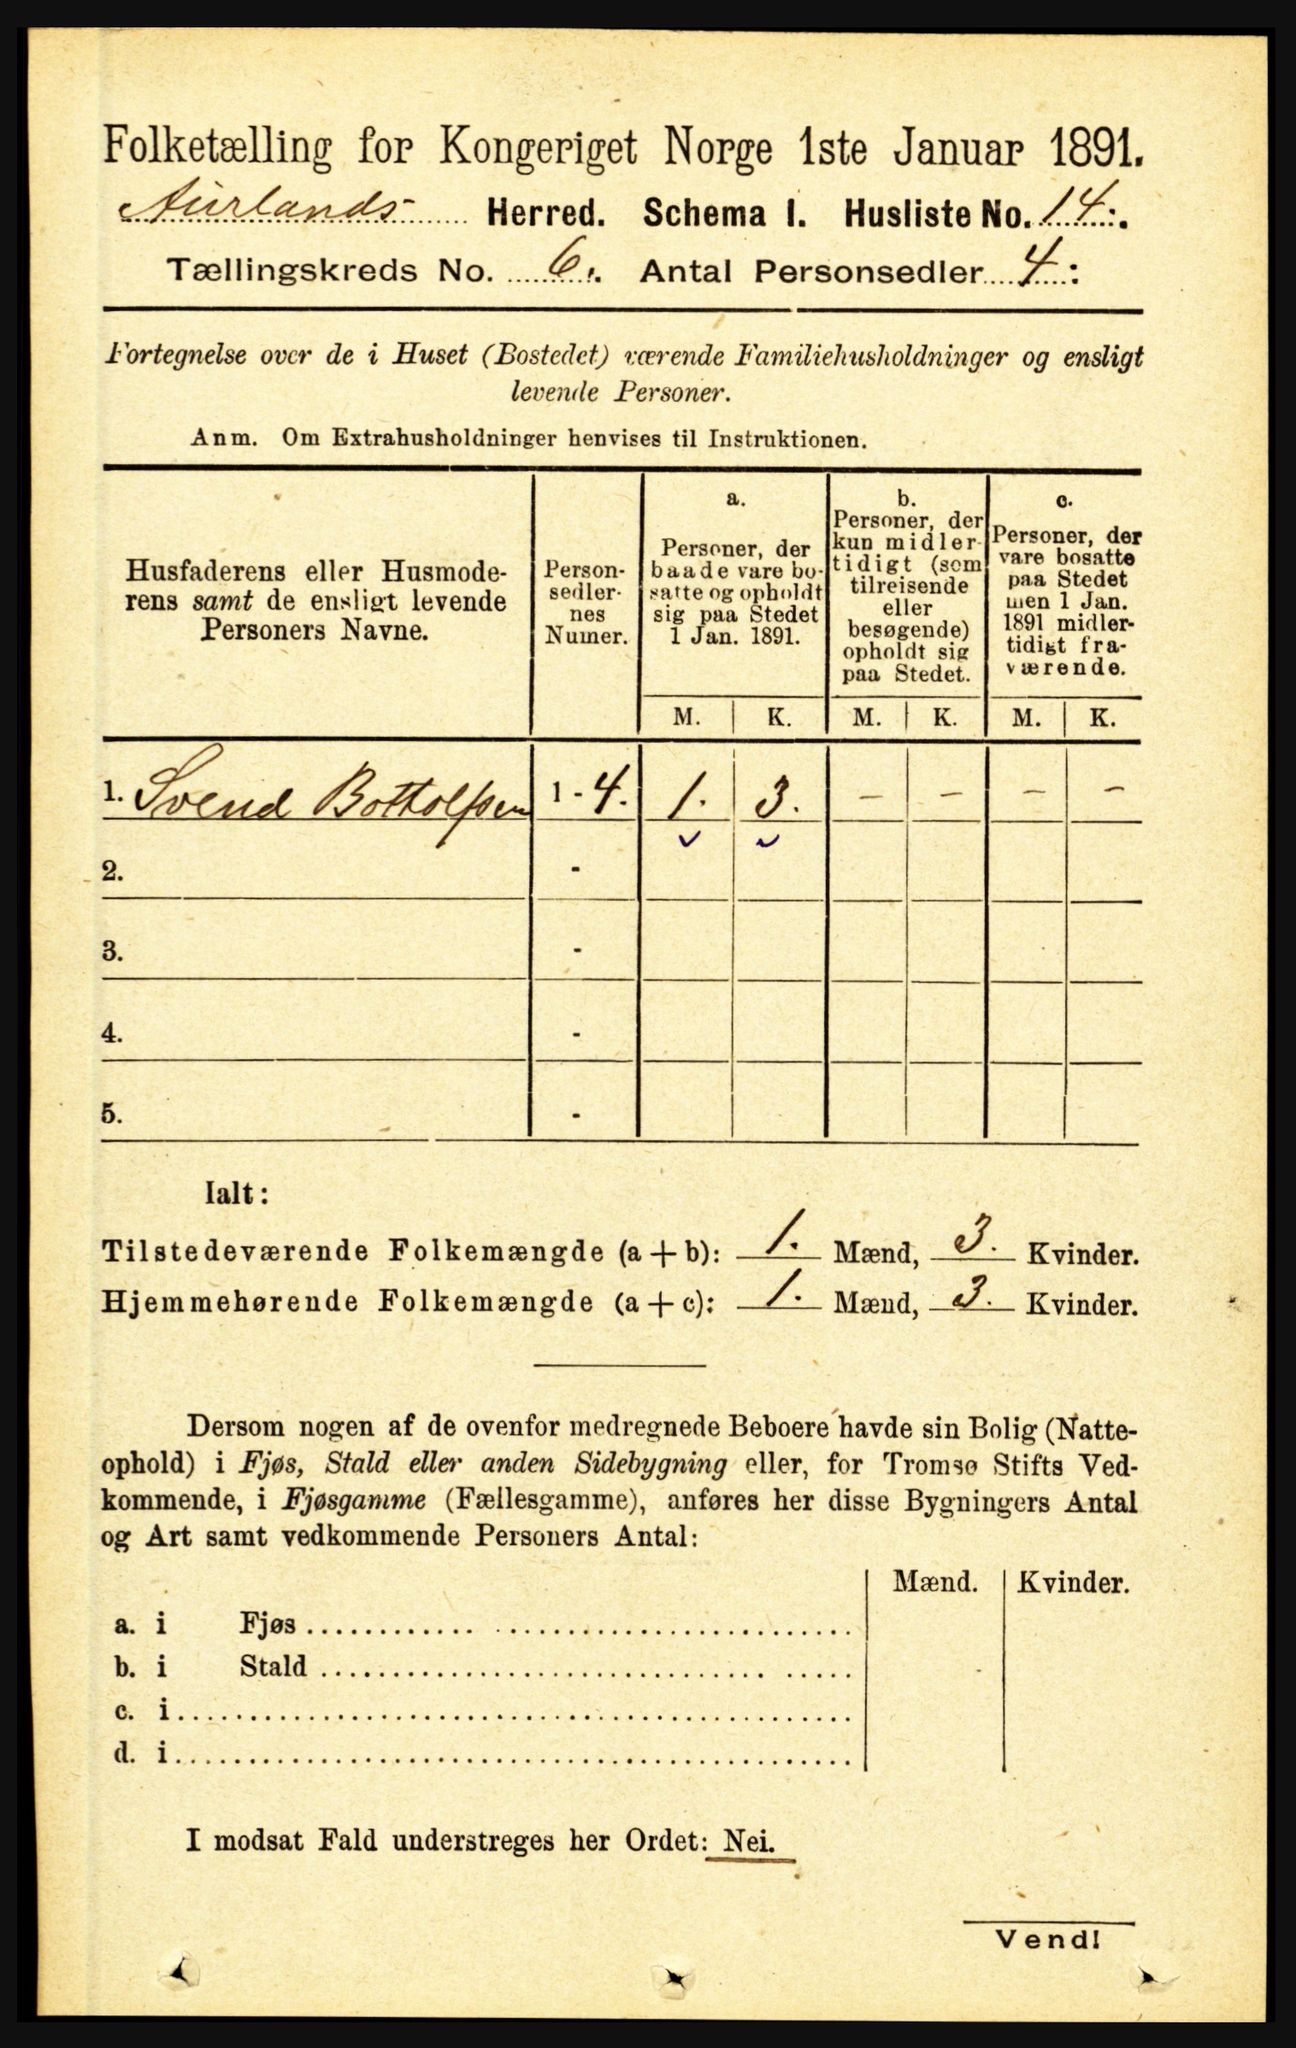 Folketælling for Kongeriget Norge 1ste Januar 1891.
Aurlands Herred. Schema I. Husliste No. 14.
Tællingskreds No. 6. Antal Personsedler 4:
Fortegnelse over de i Huset (Bostedet) værende Familiehusholdninger og ensligt
levende Personer.
Anm. Om Extrahusholdninger henvises til Instruktionen.
Husfaderens eller Husmode-
rens samt de ensligt levende
Personers Navne.
Person-
sedler-
nes
Numer.
a.
Personer, der
baade vare bo-
satte og opholdt
sig paa Stedet
1 Jan. 1891.
b.
Personer, der
kun midler-
tidigt (som
tilreisende
eller
besøgende)
opholdt sig
paa Stedet.
c.
Personer, der
vare bosatte
paa Stedet
men 1 Jan.
1891 midler-
tidigt fra-
værende.
M. K. M. K. M. K.
1. Svend Botholfsen 1 - 4. 1. 3. - - - -
2. -
3. -
4. -
5. -
Ialt:
Tilstedeværende Folkemængde (a + b): 1. Mænd, 3. Kvinder.
Hjemmehørende Folkemængde (a + c): 1. Mænd, 3. Kvinder.
Dersom nogen af de ovenfor medregnede Beboere havde sin Bolig (Natte-
ophold) i Fjøs, Stald eller anden Sidebygning eller, for Tromsø Stifts Ved-
kommende, i Fjøsgamme (Fællesgamme), anføres her disse Bygningers Antal
og Art samt vedkommende Personers Antal:
Mænd. Kvinder.
a. i Fjøs
b. i Stald
c. i
d. i
I modsat Fald understreges her Ordet: Nei.
Vend!